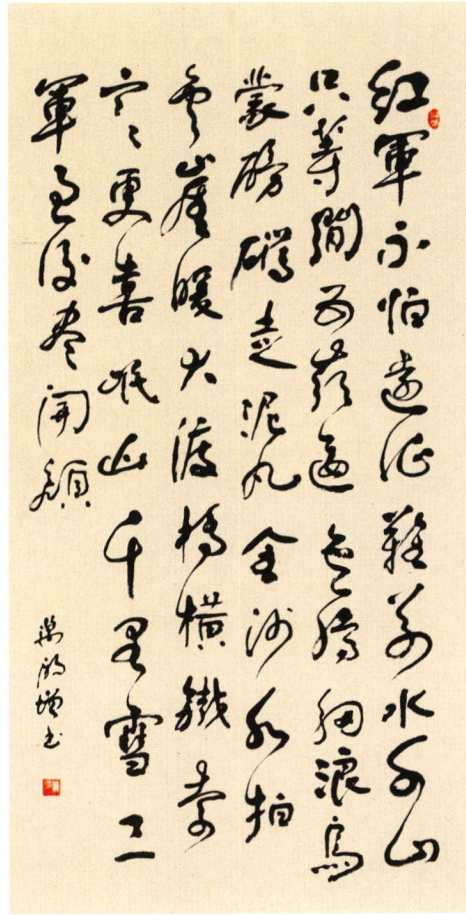 紅軍不怕遠征難萬水千山
只等閒五嶺逶迤騰細浪烏
蒙磅礴走泥丸金沙水拍
雲崖暖大渡橋橫鐵索
寒更喜岷山千里雪三
軍過後盡開顏
增书